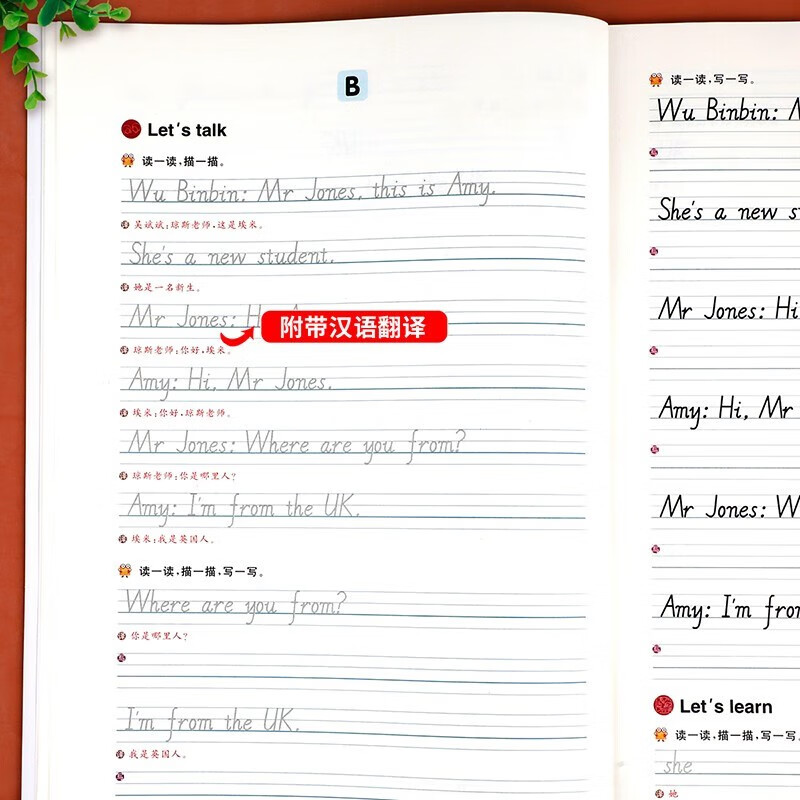 B
Let's talk
读一读,描一描。
Wu Binbin: Mr Jones, this is Amy.
译 吴斌斌:琼斯老师,这是埃米。
She's a new student.
译 她是一名新生。
Mr Jones: H
附带汉语翻译
译 琼斯老师:你好,埃米。
Amy: Hi, Mr Jones.
译 埃米:你好,琼斯老师。
Mr Jones: Where are you from?
译 琼斯老师:你是哪里人?
Amy: I'm from the UK.
译 埃米:我是英国人。
读一读,描一描,写一写。
Where are you from?
译 你是哪里人?
I'm from the UK.
译 我是英国人。
读一读,写一写。
Wu Binbin: M
She's a new st
Mr Jones: Hi
Amy: Hi, Mr
Mr Jones: W
Amy: I'm from
Let's learn
读一读,描一描,写一写。
she
译 她